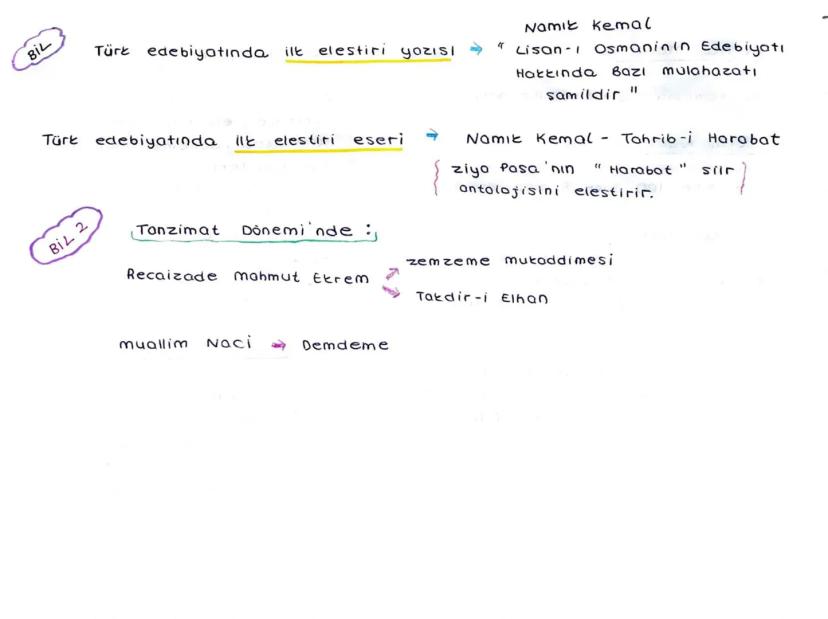 BİL
Türk edebiyatında ilk elestiri yazısı → Namık Kemal
" Lisan-ı Osmaninin Edebiyatı
Hakkında Bazı mulahazatı
samildir "
Türk edebiyatında ilk elestiri eseri → Namık Kemal - Tahrib-i Harabat
{ ziya Pasa'nın " Harabat " siir
antolojisini elestirir. }
BİL 2
Tanzimat Dönemi'nde :
Recaizade mahmut Ekrem → zemzeme mukaddimesi
→ Takdir-i Elhan
muallim Naci → Demdeme